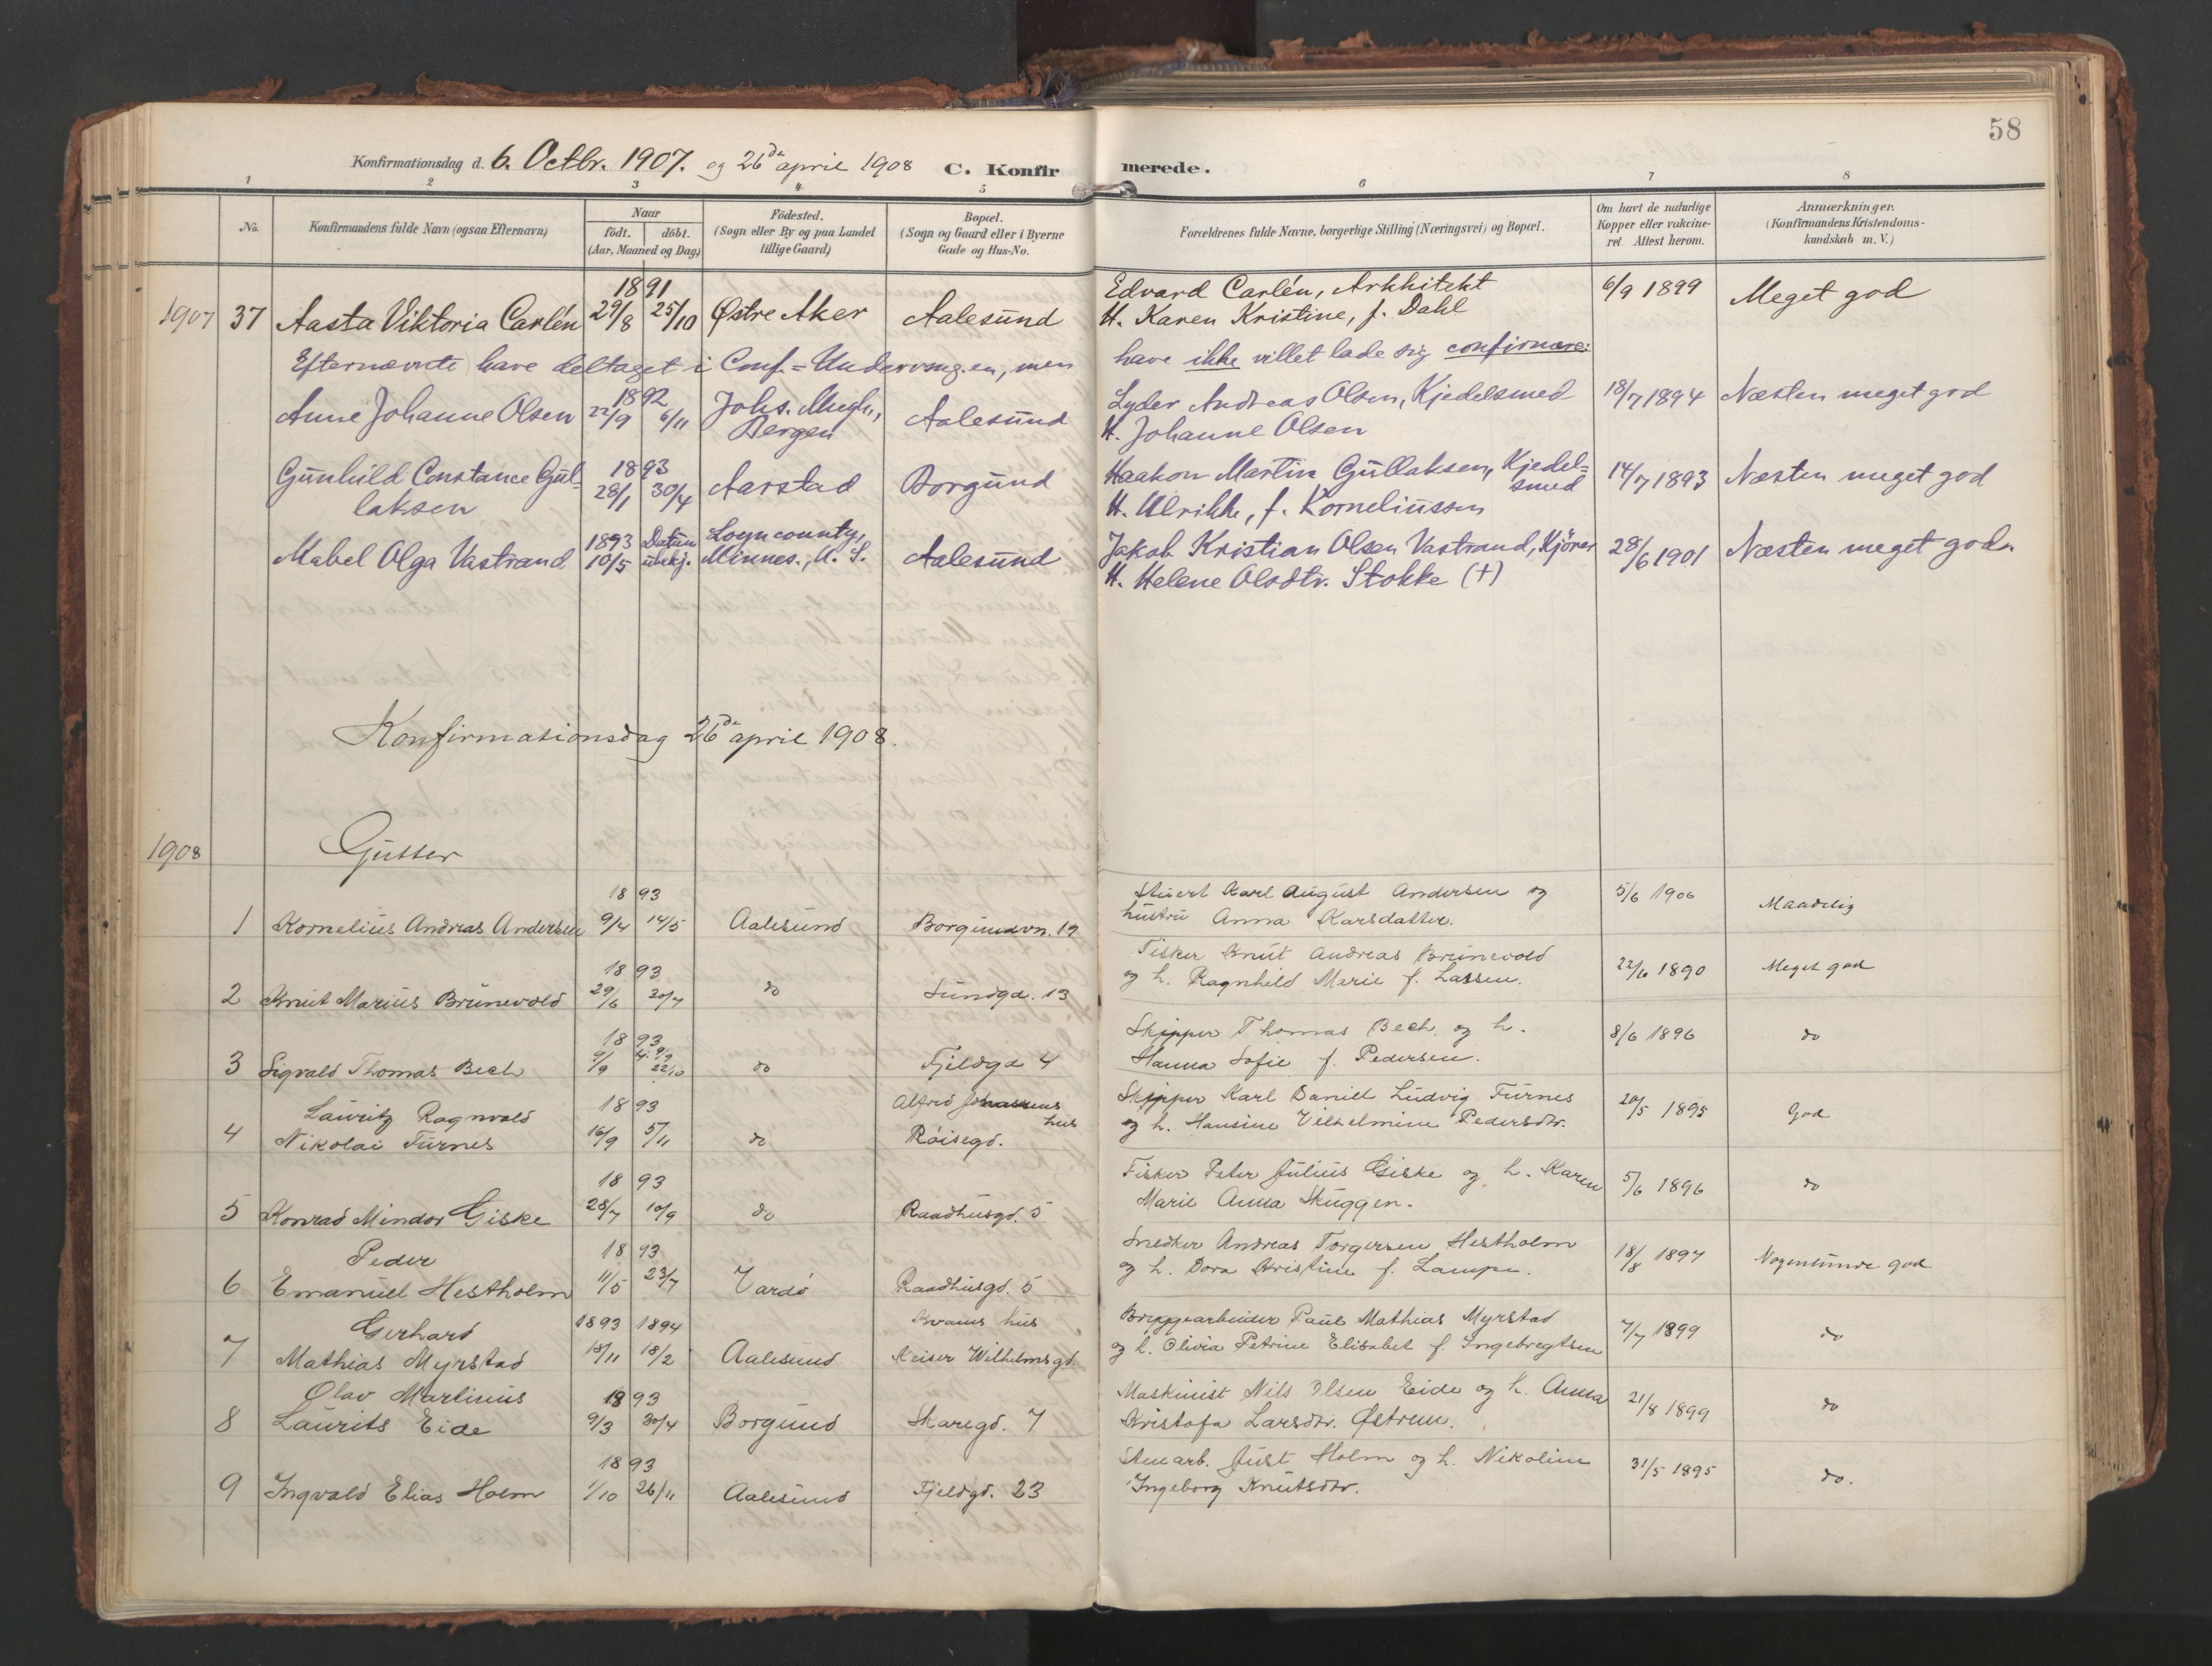 58
Konfirmationsdag d. 6. Octbr. 1907. og 26de april 1908 C. Konfirmerede.
1 2 3 4 5 6 7 8
No. Konfirmandens fulde Navn (ogsaa Efternavn) Naar født. døbt. (Aar, Maaned og Dag) Fødested. (Sogn eller By og paa Landet tillige Gaard) Bopæl. (Sogn og Gaard eller i Byerne Gade og Hus-No. Forældrenes fulde Navne, borgerlige Stilling (Næringsvei) og Bopæl. Om havt de naturlige Kopper eller vakcineret. Attest herom. Anmærkninger. (Konfirmandens Kristendomskundskab m. V.)
1891 Edvard Carlén, Arkhitekt
1907 37 Aasta Viktoria Carlén 29/8 25/10 Østre Aker Aalesund H. Karen Kristine, f. Dahl 6/9 1899 Meget god
Efternævnte have deltaget i Conf.=Undervisngen, men have ikke villet lade sig confirmere:
1892 Johs. Mngh., Lyder Andreas Olsen, Kjedelsmed
Anne Johanne Olsen 22/9 6/11 Bergen Aalesund H. Johanne Olsen 18/7 1894 Næsten meget god
Gunhild Constance Gul- 1893 Haakon Martin Gullaksen, Kjedel=smed
laksen 28/1 30/4 Aarstad Borgund H. Ulrikke, f. Korneliussen 14/7 1893 Næsten meget god
1893 Datum Logn county, Jakob Kristian Olsen Vastrand, Kjører
Mabel Olga Vastrand 10/5 ubekj. Minnes., U. S. Aalesund H. Helene Olsdtr. Stokke (+) 28/6 1901 Næsten meget god.
Konfirmasionsdag 26de april 1908.
1908 Gutter
1893 Stuert Karl August Andersen og
1 Kornelius Andreas Andersen 9/4 14/5 Aalesund Borgundvn. 19 hustru Anna Larsdatter. 5/6 1906 Maadelig
1893 Fisker Knut Andreas Brunevold
2 Knut Marius Brunevold 29/6 20/7 do Sundgd. 13 og h. Ragnhild Marie f. Lassen. 22/6 1890 Meget god
1893 Skipper Thomas Bech og h.
3 Sigvald Thomas Bech 9/9 22/10 do Fjeldgd 4 Hanna Sofie f. Pedersen. 8/6 1896 do
Lauritz Ragnvald 1893 Alfred Johansens hus Skipper Karl Daniel Ludvig Furnes
4 Nikolai Furnes 16/9 5/11 do Røisegd. og h. Hansine Vilhelmine Pedersdtr. 20/5 1895 God
1893 Fisker Peter Julius Giske og h. Karen
5 Konrad Mindor Giske 28/7 10/9 do Raadhusgd. 5 Marie Anna Skuggen. 5/6 1896 do
Peder 1893 Snedker Andreas Torgersen Hestholm
6 Emanuel Hestholm 11/5 23/7 Vardø Raadhusgd. 5 og h. Dora Kristine f. Lampe. 18/8 1897 Nogenlunde god
Gerhard 1893 1894 Kvams hus Bryggearbeider Paul Mathias Myrstad
7 Mathias Myrstad 18/11 18/2 Aalesund Keiser Wilhelmsgd. og h. Olivia Petrine Elisabet f. Ingebregtsen 7/7 1899 do
Olav Martinus 1893 Maskinist Nils Olsen Eide og h. Anna
8 Laurits Eide 9/3 30/4 Borgund Skaregd. 7 Kristofa Larsdtr. Østrem. 21/8 1899 do
1893 Stuarb. Just Holm og h. Nikoline
9 Ingvald Elias Holm 1/10 26/11 Aalesund Fjeldgd. 23 Ingeborg Knutsdtr. 31/5 1895 do.